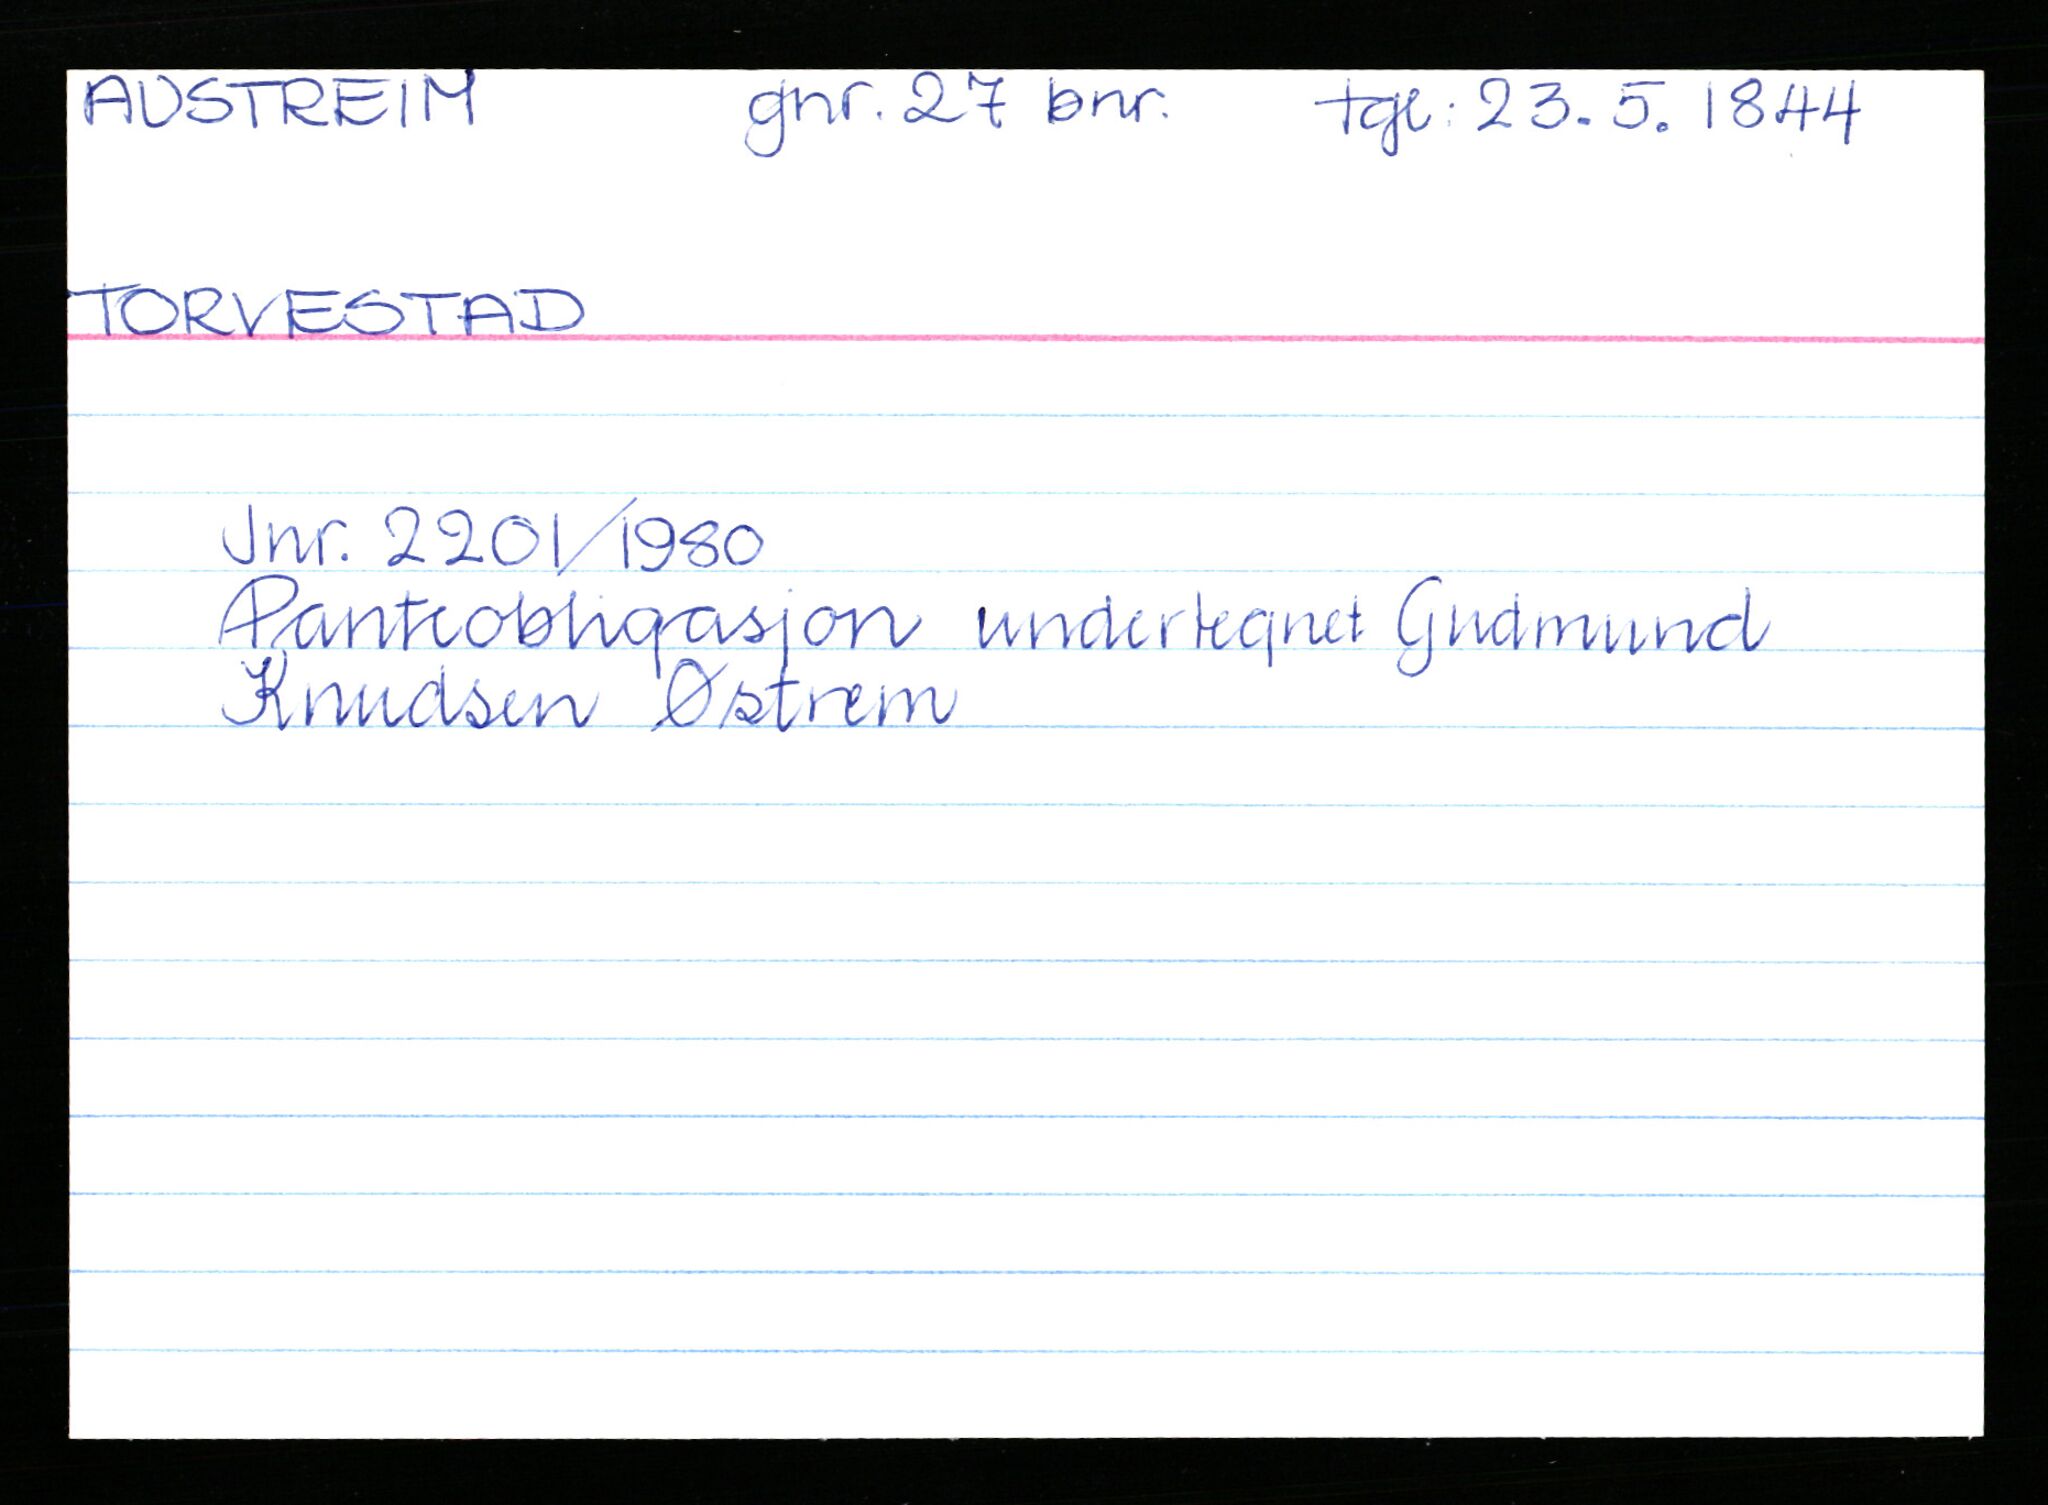 AUSTREIM gnr. 27 bnr. tgl: 23.5.1844
TORVESTAD
Jnr. 2201/1980
Panteobligasjon undertegnet Gudmund
Knudsen Østrem